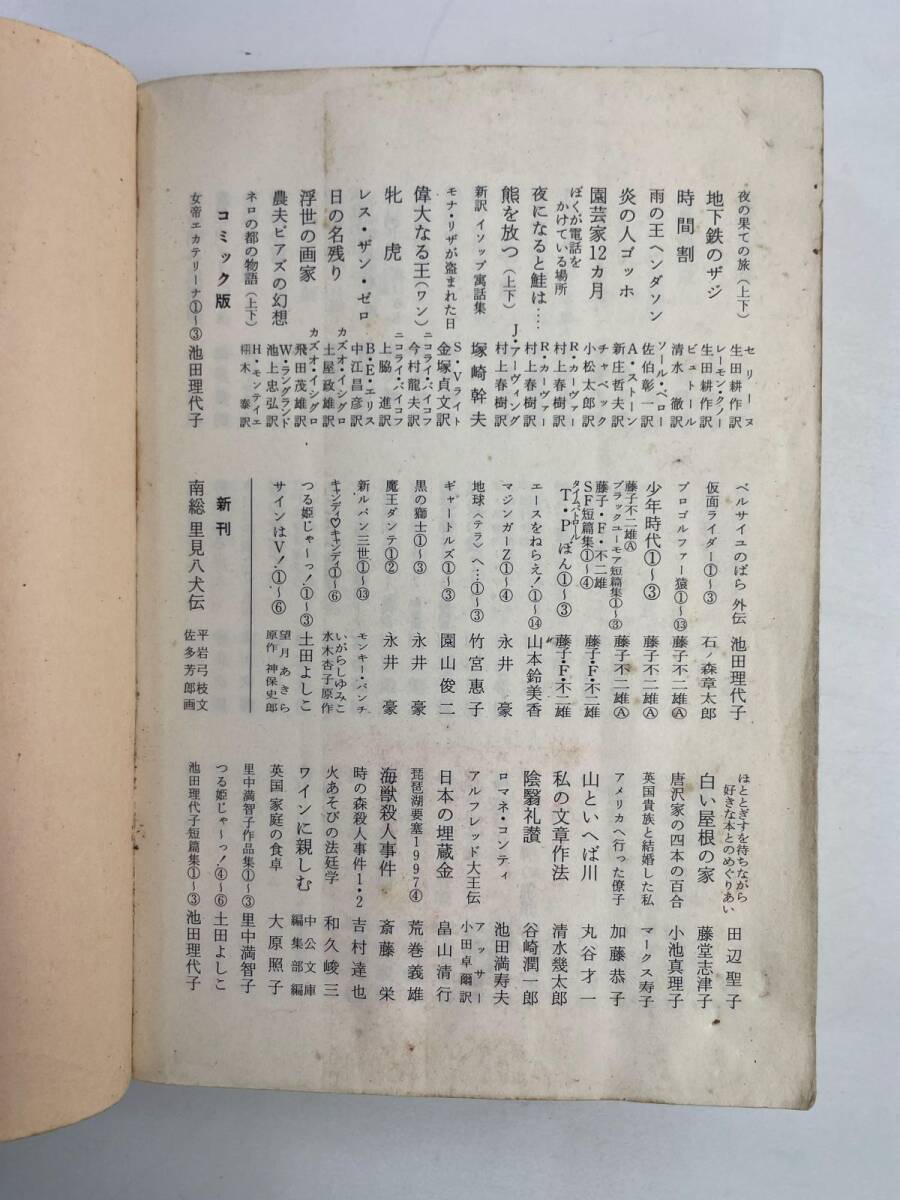 夜の果ての旅（上下） セリーヌ 生田耕作訳
地下鉄のザジ レーモン・クノー 生田耕作訳
時間割 ビュトール 清水徹訳
雨の王ヘンダソン ソール・ベロー 佐伯彰一訳
炎の人ゴッホ A・ストーン 新庄哲夫訳
園芸家12カ月 チャペック 小松太郎訳
ぼくが電話をかけている場所 R・カーヴァー 村上春樹訳
夜になると鮭は‥‥ R・カーヴァー 村上春樹訳
熊を放つ（上下） J・アーヴィング 村上春樹訳
新訳 イソップ寓話集 塚崎幹夫
モナ・リザが盗まれた日 S・Vライト 金塚貞文訳
偉大なる王（ワン） ニコライ・バイコフ 今村龍夫訳
牝虎 ニコライ・バイコフ 上脇進訳
レス・ザン・ゼロ B・E・エリス 中江昌彦訳
日の名残り カズオ・イシグロ 土屋政雄訳
浮世の画家 カズオ・イシグロ 飛田茂雄訳
農夫ピアズの幻想 W・ラングランド 池上忠弘訳
ネロの都の物語（上下） H・モンティエ 榊木泰訳
コミック版
女帝エカテリーナ①〜③ 池田理代子
ベルサイユのばら 外伝 池田理代子
仮面ライダー①〜③ 石ノ森章太郎
プロゴルファー猿①〜⑬ 藤子不二雄Ⓐ
少年時代①〜③ 藤子不二雄Ⓐ
藤子不二雄Ⓐブラックユーモア短篇集①〜③ 藤子不二雄Ⓐ
藤子・F・不二雄SF短篇集①〜④ 藤子・F・不二雄
タイムパトロールT・Pぼん①〜③ 藤子・F・不二雄
エースをねらえ！①〜⑭ 山本鈴美香
マジンガーZ①〜④ 永井豪
地球〈テラ〉へ…①〜③ 竹宮惠子
ギャートルズ①〜③ 園山俊二
黒の獅士①〜③ 永井豪
魔王ダンテ①② 永井豪
新ルパン三世①〜⑬ モンキー・パンチ
キャンディ♡キャンディ①〜⑥ いがらしゆみこ 水木杏子原作
つる姫じゃ〜っ！①〜③ 土田よしこ
サインはV！①〜⑥ 望月あきら 原作 神保史郎
新刊
南総里見八犬伝 平岩弓枝文 佐多芳郎画
ほととぎすを待ちながら 好きな本とのめぐりあい 田辺聖子
白い屋根の家 藤堂志津子
唐沢家の四本の百合 小池真理子
英国貴族と結婚した私 マークス寿子
アメリカへ行った僚子 加藤恭子
山といへば川 丸谷才一
私の文章作法 清水幾太郎
陰翳礼讃 谷崎潤一郎
ロマネ・コンティ 池田満寿夫
アルフレッド大王伝 アッサー 小田卓爾訳
日本の埋蔵金 畠山清行
琵琶湖要塞1997④ 荒巻義雄
海獣殺人事件 斎藤栄
時の森殺人事件1・2 吉村達也
火あそびの法廷学 和久峻三
ワインに親しむ 中公文庫編集部編
英国 家庭の食卓 大原照子
里中満智子作品集①〜③ 里中満智子
つる姫じゃ〜っ！④〜⑥ 土田よしこ
池田理代子短篇集①〜③ 池田理代子